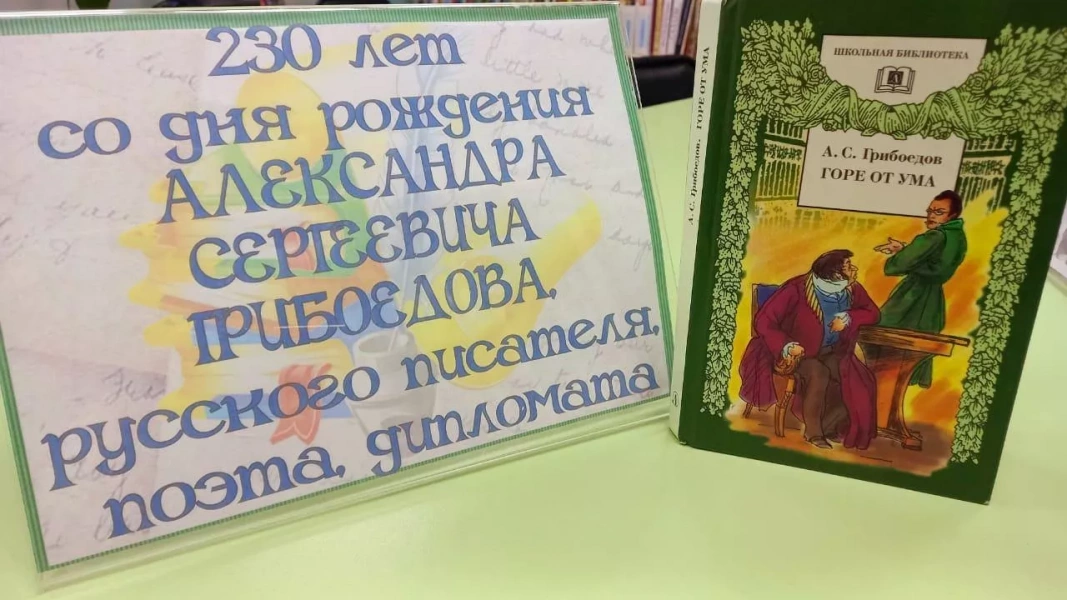 230 лет
со дня рождения
АЛЕКСАНДРА
СЕРГЕЕВИЧА
ГРИБОЕДОВА,
русского писателя,
поэта, дипломата
А. С. Грибоедов, ГОРЕ ОТ УМА
ШКОЛЬНАЯ БИБЛИОТЕКА
А. С. Грибоедов
ГОРЕ ОТ УМА